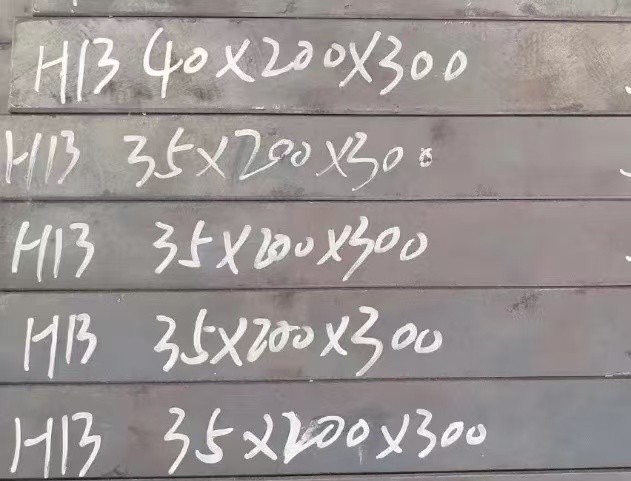 H13 40X200X300
H13 35X200X300
H13 35X200X300
H13 35X200X300
H13 35X200X300